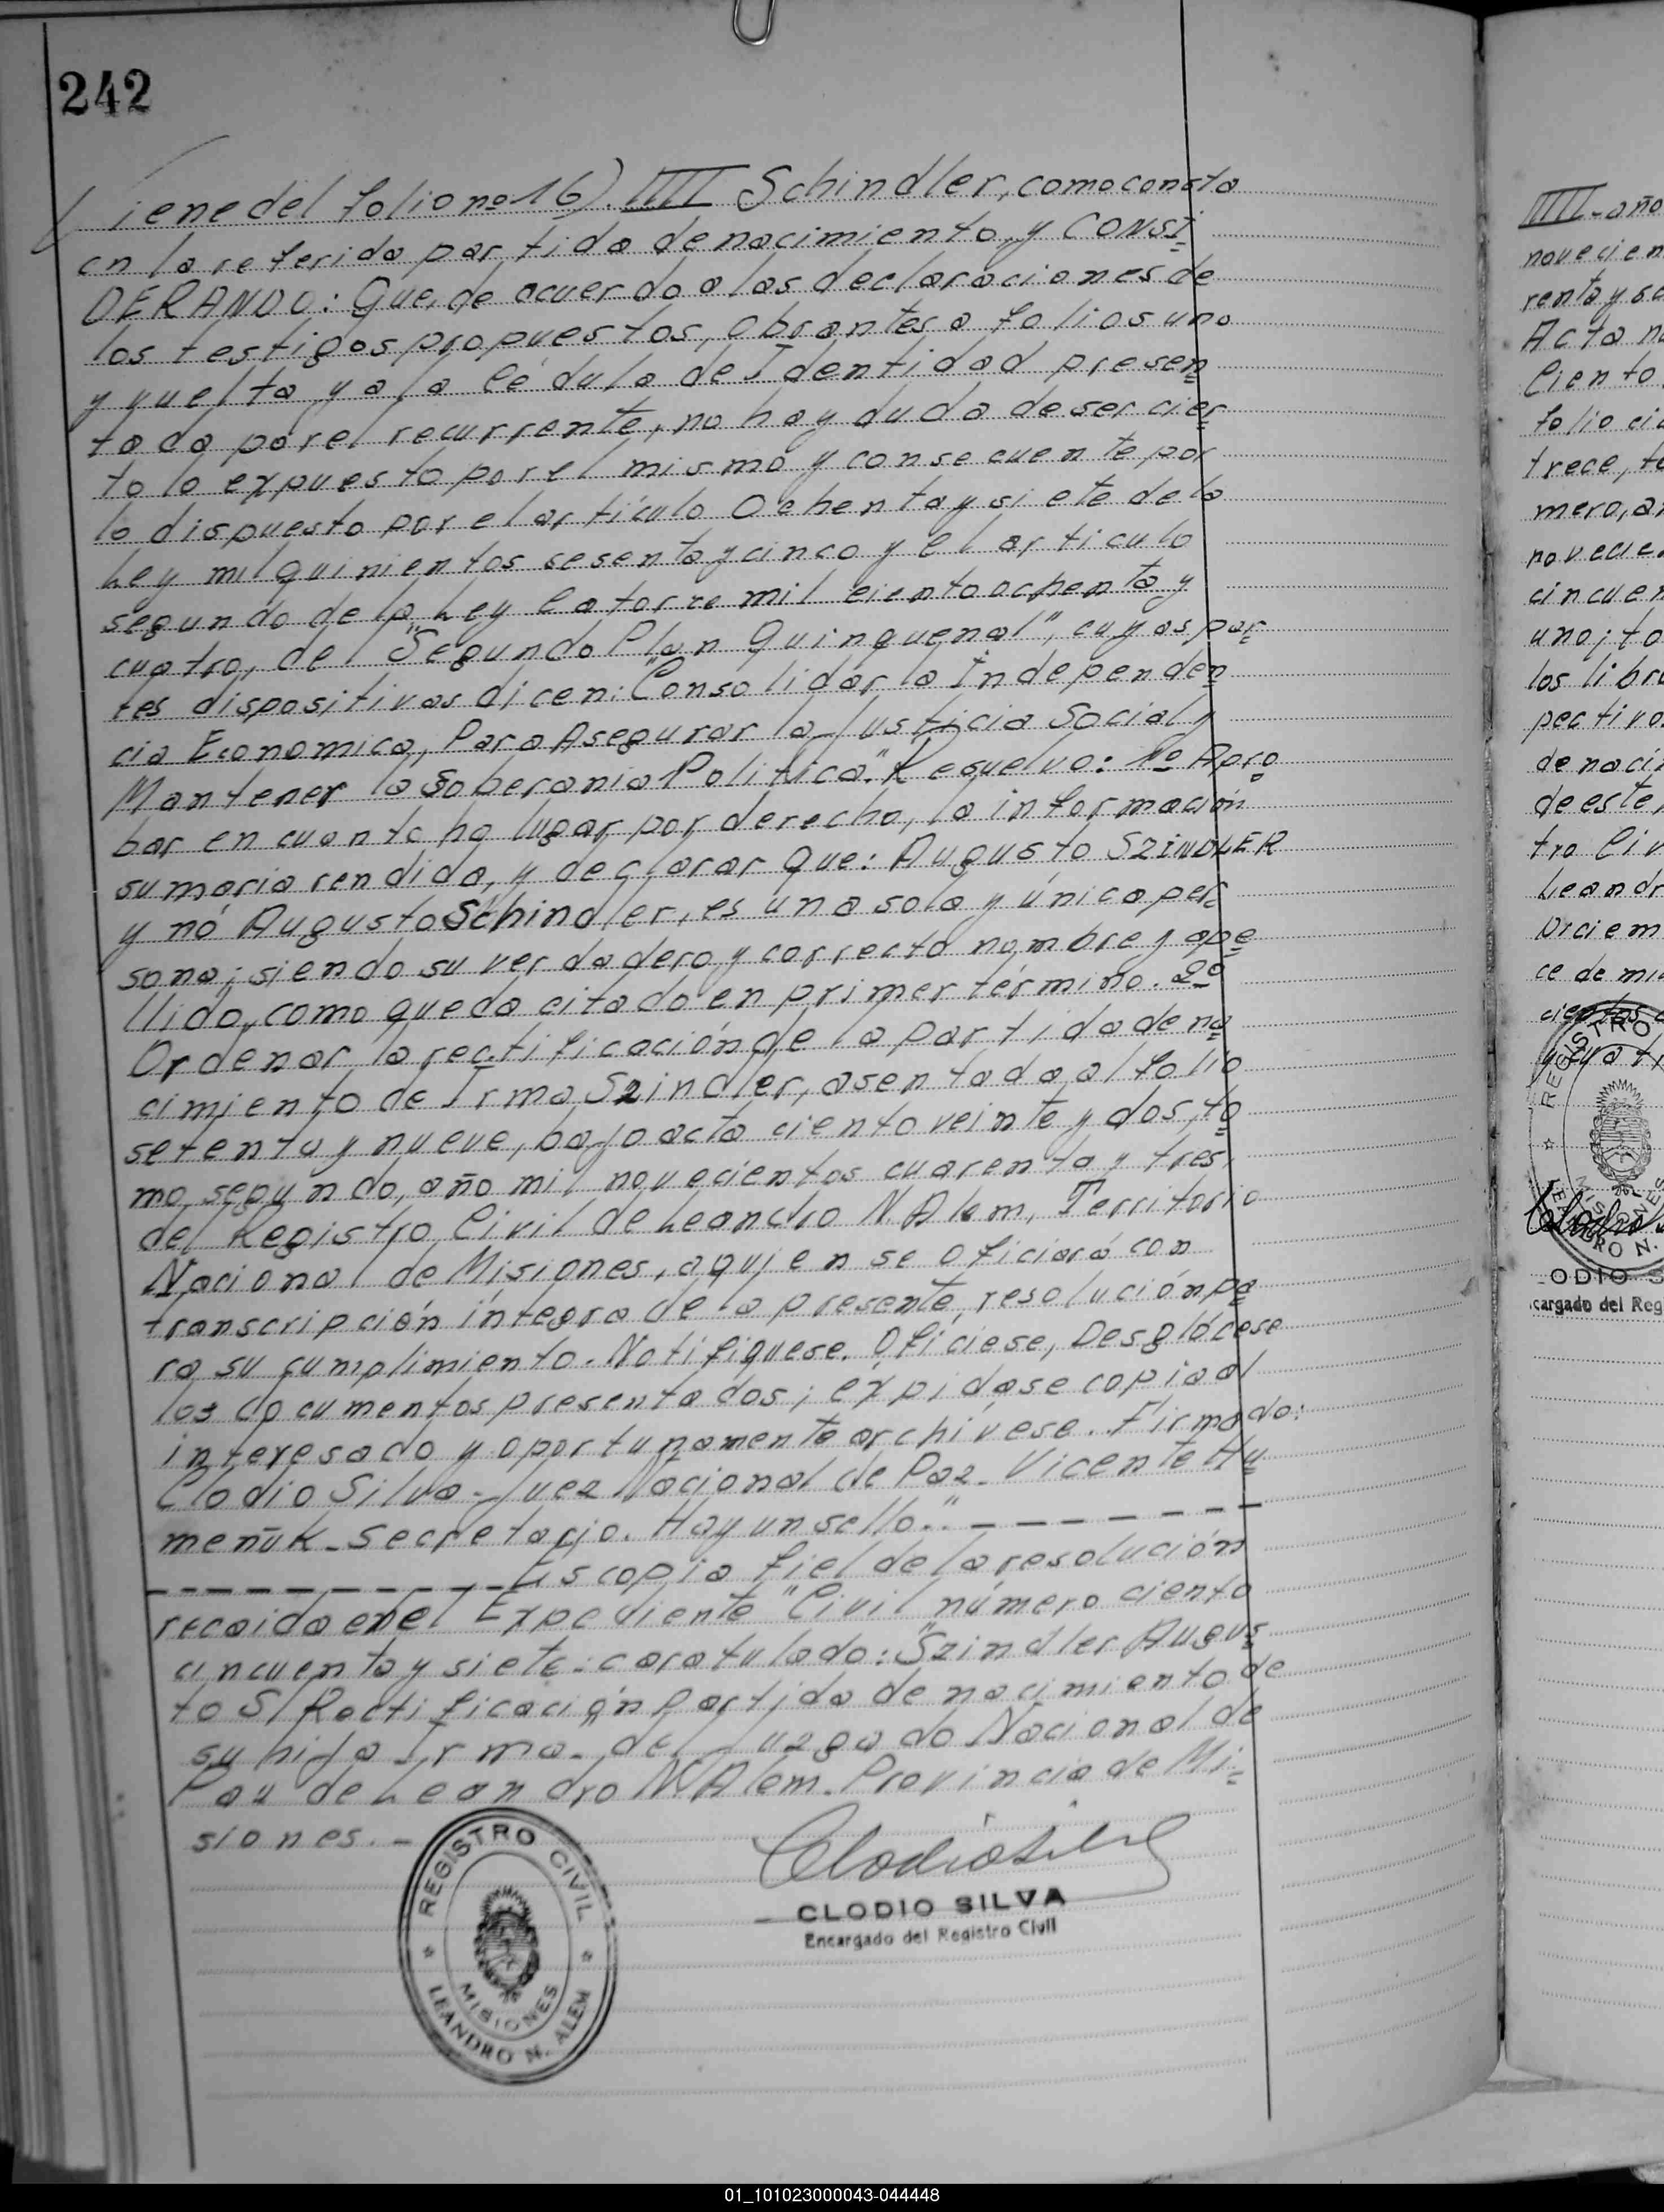 242
Viene del folio no 16). IIII Schindler, como consta
en la referida partida de nacimiento, y CONSI
DERANDO: Que, de acuerdo a las declaraciones de
los testigos propuestos, obrantes a folios uno
y vuelta y a la Cédula de Identidad presen
tada por el recurrente, no hay duda de ser cier
to lo expuesto por el mismo y consecuente por
lo dispuesto por el artículo Ochenta y siete de la
Ley mil quinientos sesenta y cinco y el articulo
segundo de la Ley Catorce mil ciento ochenta y
cuatro, del "Segundo Plan Quinquenal", cuyas par
tes dispositivas dicen: "Consolidar la Independen
cia Economica, Para Asegurar la Justicia Social y
Mantener la Soberania Politica." Resuelvo: 1º Apro
bar en cuanto ha lugar por derecho, la información
sumaria rendida, y declarar que: Augusto SZINDLER
y nó Augusto Schindler, es una sola y única per
sona; siendo su verdadero y correcto nombre y ape
llido, como queda citado en primer término. 2º
Ordenar la rectificación de la partida de na
cimiento de Irma Szindler, asentada al folio
setenta y nueve, bajo acta ciento veinte y dos, to
mo segundo, año mil novecientos cuarenta y tres,
del Registro Civil de Leandro N. Alem, Territorio
Nacional de Misiones, a quien se oficiará con
transcripción íntegra de la presente resolución pa
ra su cumplimiento. Notifiquese. Ofíciese, Desglócese
los documentos presentados; expidase copia al
interesado y oportunamente archivese. Firmado:
Clodio Silva - Juez Nacional de Paz - Vicente Hu
meñuk - Secretario. Hay un sello." - - - - - - -
- - - - - - - - - - Es copia fiel de la resolución
recaida en el Expediente "Civil número ciento
cincuenta y siete: caratulado: "Szindler Augus
to S/ Rectificación partida de nacimiento de
su hija Irma - del Juzgado Nacional de
Paz de Leandro N. Alem. Provincia de Mi-
siones. -
Clodio Silva
CLODIO SILVA
Encargado del Registro Civil
REGISTRO CIVIL
MISIONES
LEANDRO N. ALEM
IIII - año
renta y
Acta
Ciento
folio
trece,
mero,
uno; to
los
de este
tro
ce de
REGISTRO
MISIONES
01_101023000043-044448